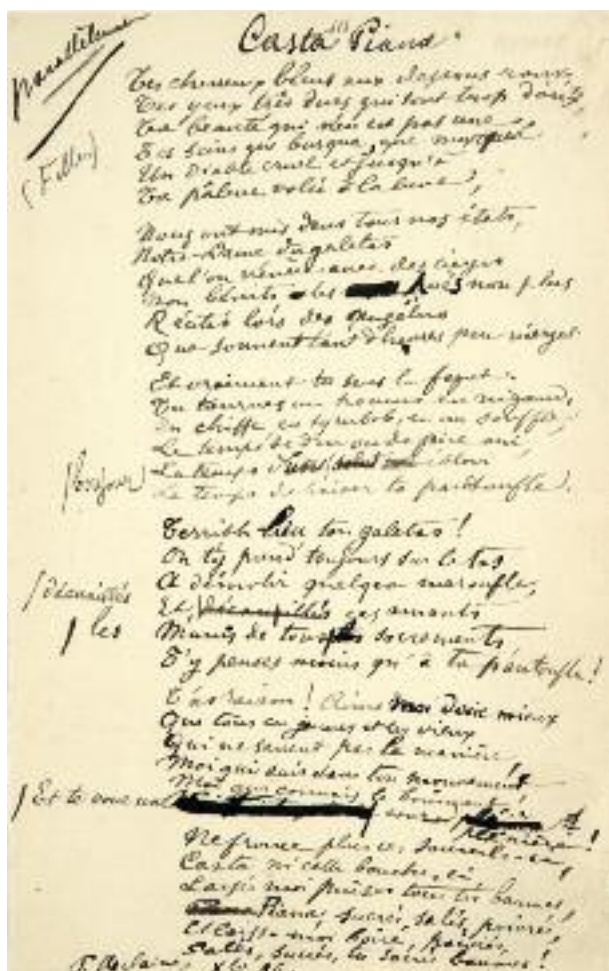 parallèlement
Casta Piana
(Filles)
Tes cheveux bleus aux dessous roux,
Tes yeux très durs qui sont trop doux,
Ta beauté qui n'en est pas une,
Tes seins que busqua, que musqua
Un Diable cruel et jusqu'à
Ta pâleur volée à la lune,
Nous ont mis dans tous nos états,
Notre-Dame du galetas
Que l'on vénère avec des cierges
Non bénits, les Avés non plus
Récités lors des angélus
Que sonnent tant d'heures peu vierges.
Et vraiment tu sens le fagot:
Tu tournes un homme en nigaud,
En chiffre, en symbole, en un souffle,
Le temps de dire ou de faire oui,
Le temps d'un
Le temps de baiser ta pantoufle.
bonjour
Terrible lieu, ton galetas!
On t'y prend toujours sur le tas
A démolir quelque maroufle,
décanillés
Et, ces amants
les
Munis de tous sacrements
T'y penses moins qu'à ta pantoufle!
T'as raison! Aime-moi donc mieux
Que tous ces jeunes et ces vieux
Qui ne savent pas la manière,
Moi qui suis dans ton mouvement,
Moi qui connais le boniment
Et te voue une
plénière!
Ne fronce plus ces sourcils-ci,
Casta, ni cette bouche-ci,
Laisse-moi puiser tous tes baumes,
Piana, sucrés, salés, poivrés,
Et laisse-moi boire, poivrés,
Salés, sucrés, tes sacrés baumes!
P. Verlaine